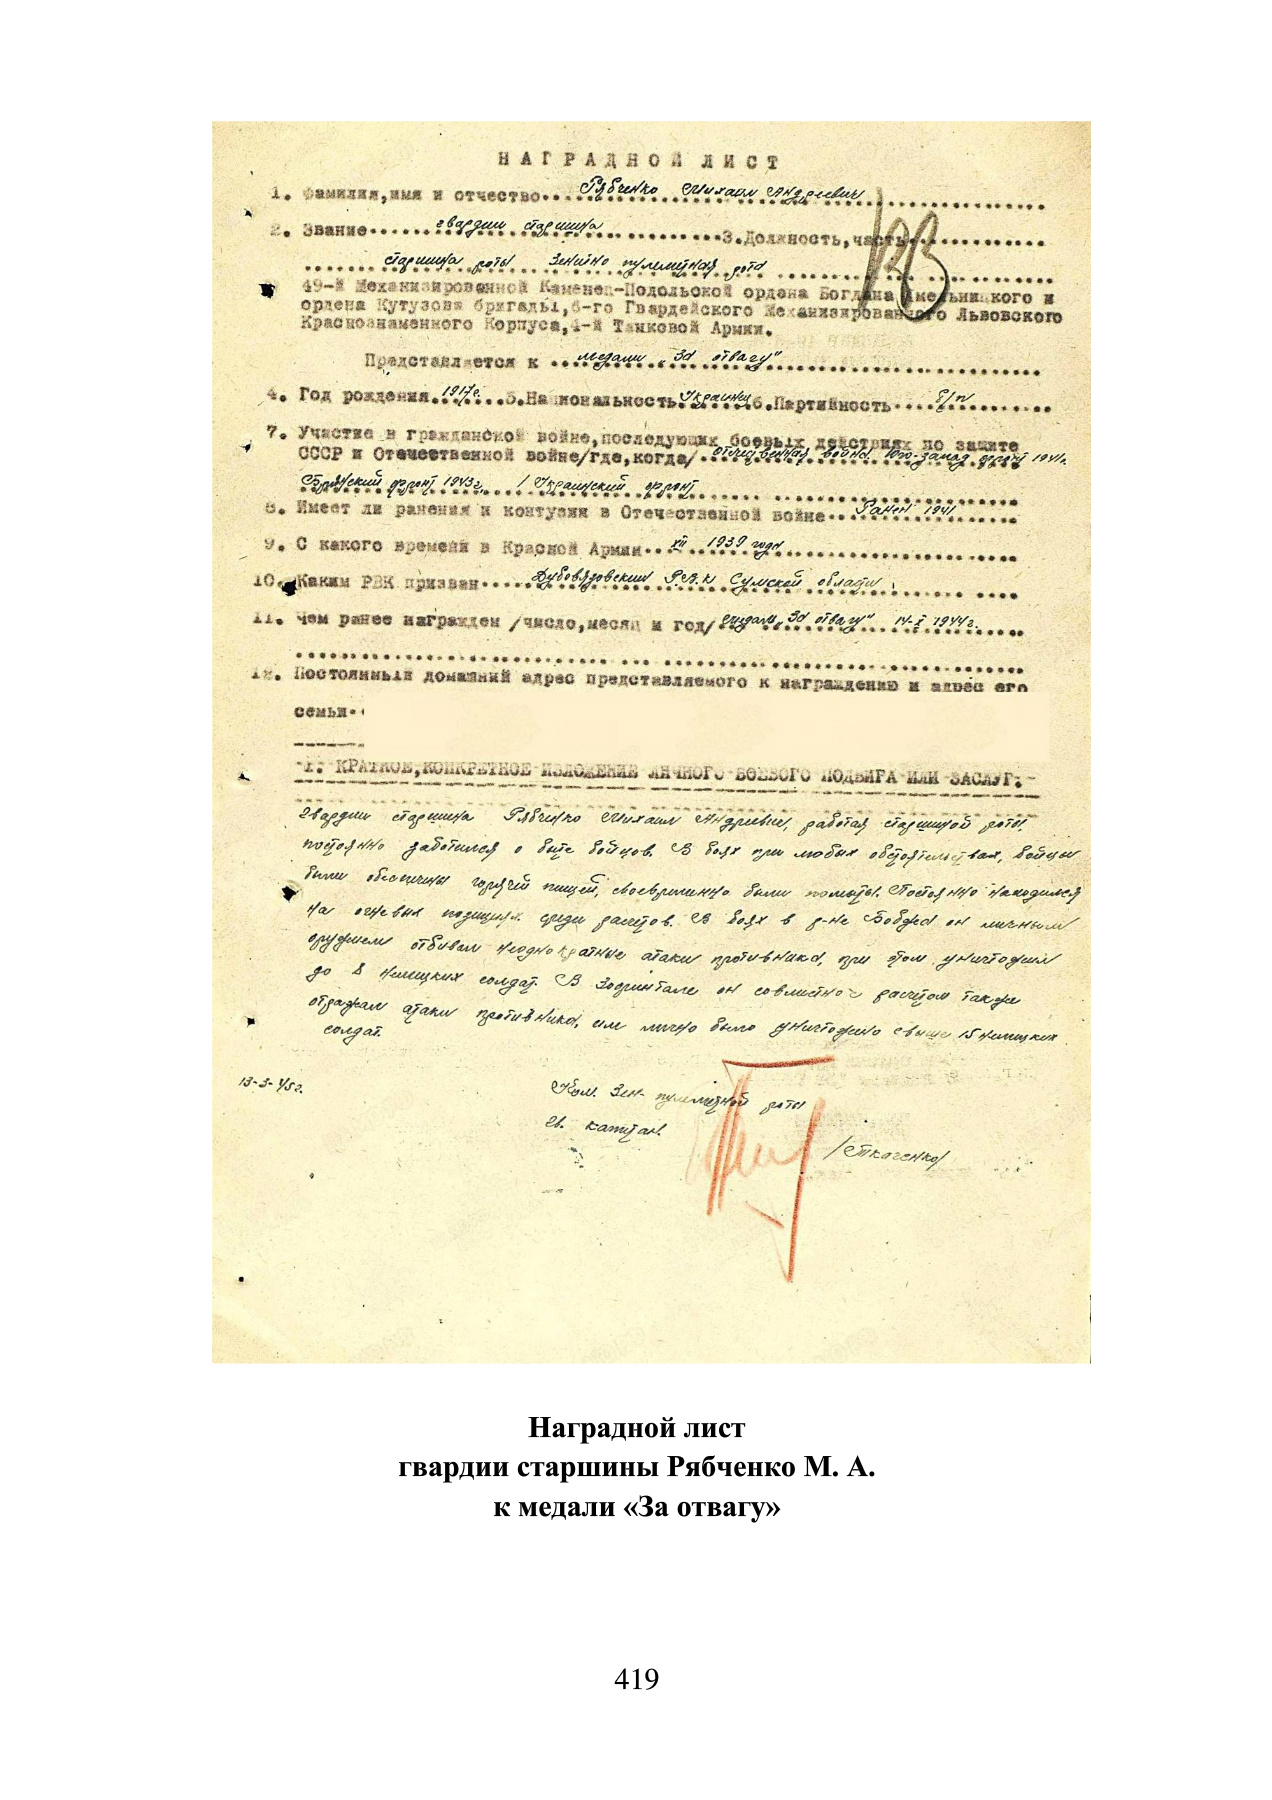 НАГРАДНОЙ ЛИСТ
1. Фамилия,имя и отчество..Рябченко Михаил Андреевич
2. Звание гвардии старшина 3.Должность,часть
старшина роты Зенитно пулеметная рота
49-й Механизированной Каменец-Подольской ордена Богдана Хмельницкого и
ордена Кутузова бригады,6-го Гвардейского Механизированного Львовского
Краснознаменного Корпуса,4-й Танковой Армии.
Представляется к медали „За отвагу"
4. Год рождения 1917г. 5.Национальность Украинец 6.Партийность б/п
7. Участие в гражданской войне,последующих боевых действиях по защите
СССР и Отечественной войне/где,когда/ отечественная война Юго-запад фронт 1941г.
Брянский фронт 1943г. 1 Украинский фронт
8. Имеет ли ранения и контузия в Отечественной войне Ранен 1941
9. С какого времени в Красной Армии XII 1939 года
10. Каким РВК призван Дубовязовским Р.В.К Сумской области
11. Чем ранее награжден /число,месяц и год/ медаль „За отвагу" 14-X 1944г.
12. Постоянный домашний адрес представляемого к награждению и адрес его
семьи
1. КРАТКОЕ,КОНКРЕТНОЕ ИЗЛОЖЕНИЕ ЛИЧНОГО БОЕВОГО ПОДВИГА ИЛИ ЗАСЛУГ:
Гвардии старшина Рябченко Михаил Андреевич, работая старшиной роты
постоянно заботился о быте бойцов. В боях при любых обстоятельствах, бойцы
были обеспечены горячей пищей, своевременно были помыты. Постоянно находился
на огневых позициях среди расчетов. В боях в р-не Бобжа он личным
оружием отбивал неоднократные атаки противника, при этом уничтожил
до 8 немецких солдат. В он совместно с расчетом также
отражал атаки противника, им лично было уничтожено свыше 15 немецких
солдат.
13-3-45г.
Ком. Зен- пулеметной роты
гв. капитан.
/Ткаченко/
Наградной лист
гвардии старшины Рябченко М. А.
к медали «За отвагу»
419